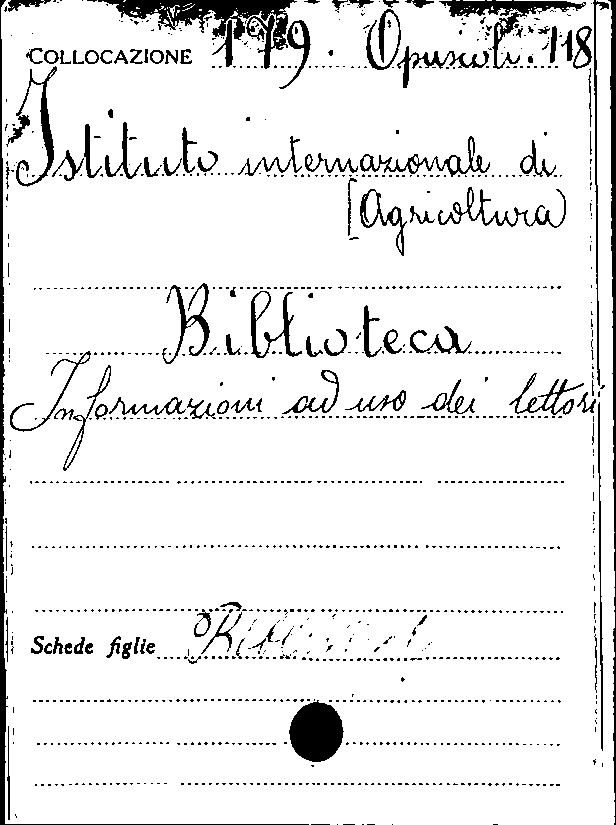 COLLOCAZIONE 179. Opuscoli. 118
Istituto internazionale di
[Agricoltura)
Biblioteca
Informazioni ad uso dei lettori
Schede figlie